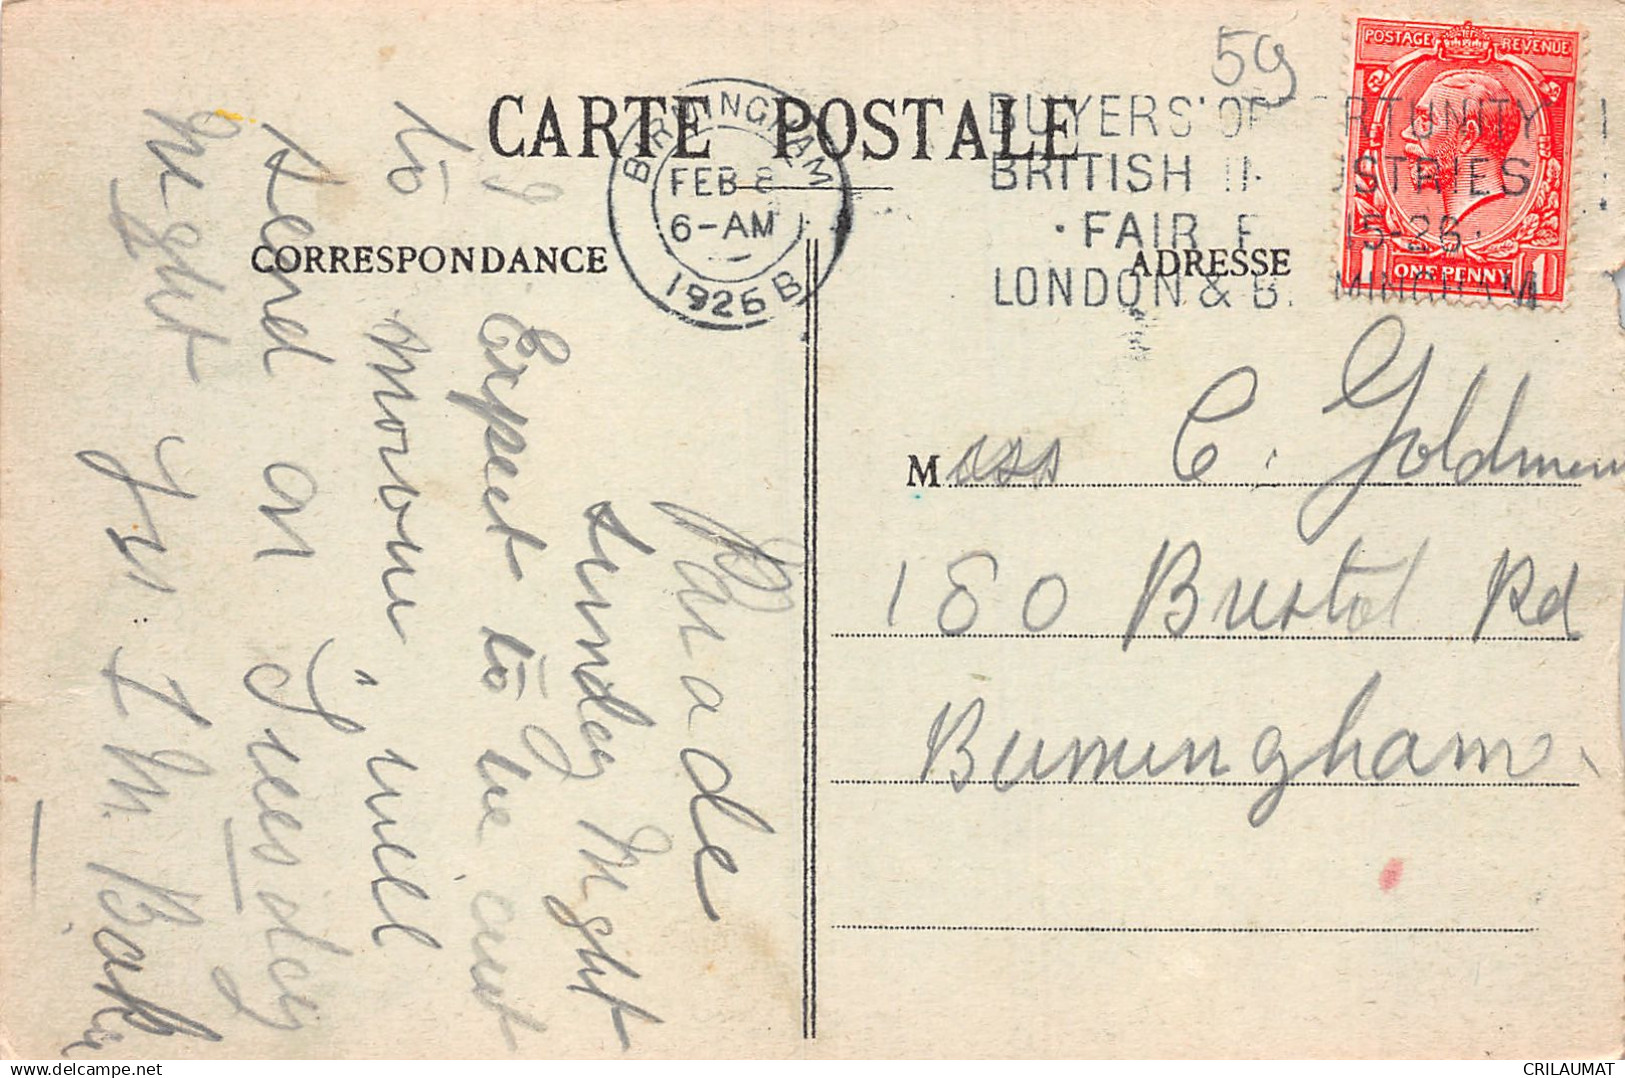 CARTE POSTALE
59
CORRESPONDANCE
ADRESSE
BIRMINGHAM
FEB 8
6-AM
1926 B
BUYERS' OPPORTUNITY
BRITISH INDUSTRIES
FAIR FEB 15-26
LONDON & BIRMINGHAM
POSTAGE REVENUE
1 ONE PENNY 1
Parade
Sunday Night
Expect to be out
to morow, will
send on Tuesday
Night Yrs. I M. Baker
Miss C. Goldmen
180 Bristol Rd
Birmingham.
delcampe.net
CRILAUMAT